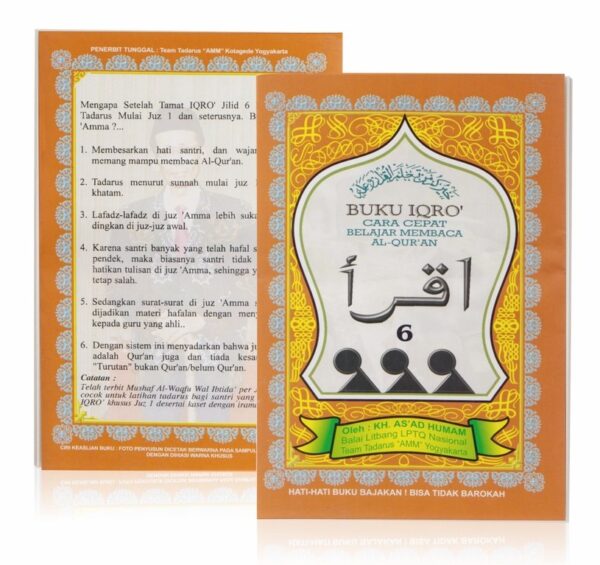 PENERBIT TUNGGAL : Team Tadarus "AMM" Kotagede Yogyakarta
Mengapa Setelah Tamat IQRO' Jilid 6
Tadarus Mulai Juz 1 dan seterusnya. B
'Amma ?...
1. Membesarkan hati santri, dan wajar
memang mampu membaca Al-Qur'an.
2. Tadarus menurut sunnah mulai juz 1
khatam.
3. Lafadz-lafadz di juz 'Amma lebih suka
dingkan di juz-juz awal.
4. Karena santri banyak yang telah hafal s
pendek, maka biasanya santri tidak
hatikan tulisan di juz 'Amma, sehingga y
tetap salah.
5. Sedangkan surat-surat di juz 'Amma s
dijadikan materi hafalan dengan meny
kepada guru yang ahli..
6. Dengan sistem ini menyadarkan bahwa ju
adalah Qur'an juga dan tiada kesa
"Turutan" bukan Qur'an/belum Qur'an.
Catatan :
Telah terbit Mushaf Al-Waqfu Wal Ibtida' per
cocok untuk latihan tadarus bagi santri yang
IQRO' khusus Juz 1 desertai kaset dengan irama
CIRI KEASLIAN BUKU : FOTO PENYUSUN DICETAK BERWARNA PADA SAMPUL
DENGAN DIHIASI WARNA KHUSUS
خيركم من تعلم القرآن وعلمه
BUKU IQRO'
CARA CEPAT
BELAJAR MEMBACA
AL-QUR'AN
اقرأ
6
Oleh : KH. AS'AD HUMAM
Balai Litbang LPTQ Nasional
Team Tadarus "AMM" Yogyakarta
HATI-HATI BUKU BAJAKAN ! BISA TIDAK BAROKAH